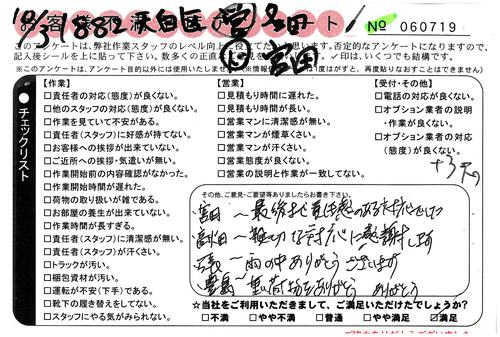 10/31 8812 天白区 営 名田
№ 060719
作 宮田
このアンケートは、弊社作業スタッフのレベル向上に役立てたいと思います。否定的なアンケートになりますので、
記入後シールを上に貼って下さい。
✓印は、いくつでも結構です。
チェックリスト
【作業】
□責任者の対応(態度)が良くない。
□他のスタッフの対応(態度)が良くない。
□作業を見ていて不安がある。
□責任者(スタッフ)に好感が持てない。
□お客様への挨拶が出来ていない。
□ご近所への挨拶・気遣いが無い。
□作業開始前の内容確認がなかった。
□作業開始時間が遅れた。
□荷物の取り扱いが雑である。
□お部屋の養生が出来ていない。
□作業時間が長すぎる。
□責任者(スタッフ)に清潔感が無い。
□責任者(スタッフ)が汗くさい。
□トラックが汚い。
□梱包資材が汚い。
□運転が不安(下手)である。
□靴下の履き替えをしてない。
□スタッフにやる気がみられない。
【営業】
□見積もり時間に遅れた。
□見積もり時間が長い。
□営業マンに清潔感が無い。
□営業マンが煙草くさい。
□営業マンが汗くさい。
□営業態度が良くない。
□営業の説明と作業が一致してない。
【受付・その他】
□電話の対応が良くない。
□オプション業者の説明
・作業が良くない。
□オプション業者の対応
(態度)が良くない。
その他、ご意見・ご要望等ありましたらお書き下さい。
宮田 〜 最後まで責任感のある対応でした
〜 親切な対応に感謝します
〜 雨の中ありがとうございます
豊島 〜 重い荷物をありがとう ありがとう
☆当社をご利用いただきまして、ご満足いただけたでしょうか?
□不満 □やや不満 □普通 □やや満足 ☑満足